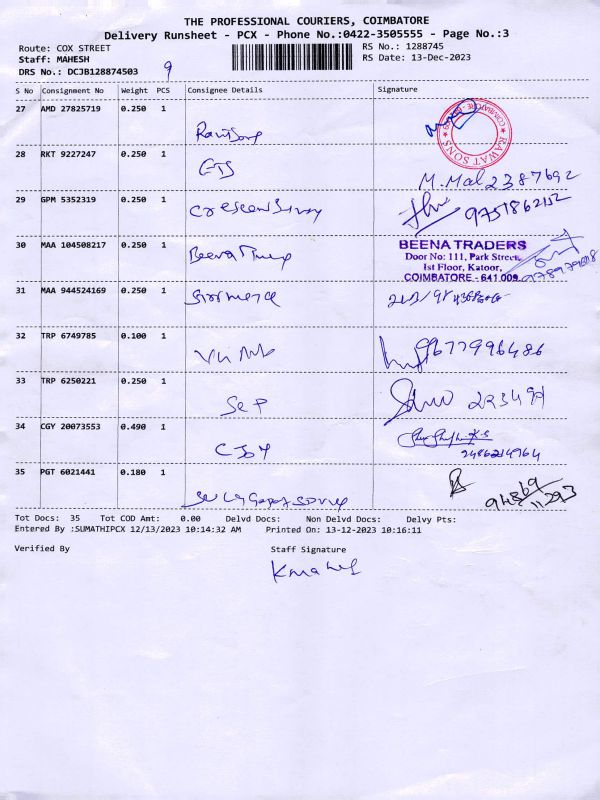 THE PROFESSIONAL COURIERS, COIMBATORE
Delivery Runsheet - PCX - Phone No.:0422-3505555 - Page No.:3
Route: COX STREET RS No.: 1288745
Staff: MAHESH RS Date: 13-Dec-2023
DRS No.: DCJB128874503 9
S No Consignment No Weight PCS Consignee Details Signature
27 AMD 27825719 0.250 1
RAWAT SONS
28 RKT 9227247 0.250 1
M. Mal 2387692
29 GPM 5352319 0.250 1
9751862152
30 MAA 104508217 0.250 1
Beena
BEENA TRADERS
Door No: 111, Park Street,
Ist Floor, Katoor,
COIMBATORE - 641 009
31 MAA 944524169 0.250 1
32 TRP 6749785 0.100 1
9677996486
33 TRP 6250221 0.250 1
34 CGY 20073553 0.490 1
2486214964
35 PGT 6021441 0.180 1
Tot Docs: 35 Tot COD Amt: 0.00 Delvd Docs: Non Delvd Docs: Delvy Pts:
Entered By :SUMATHIPCX 12/13/2023 10:14:32 AM Printed On: 13-12-2023 10:16:11
Verified By Staff Signature